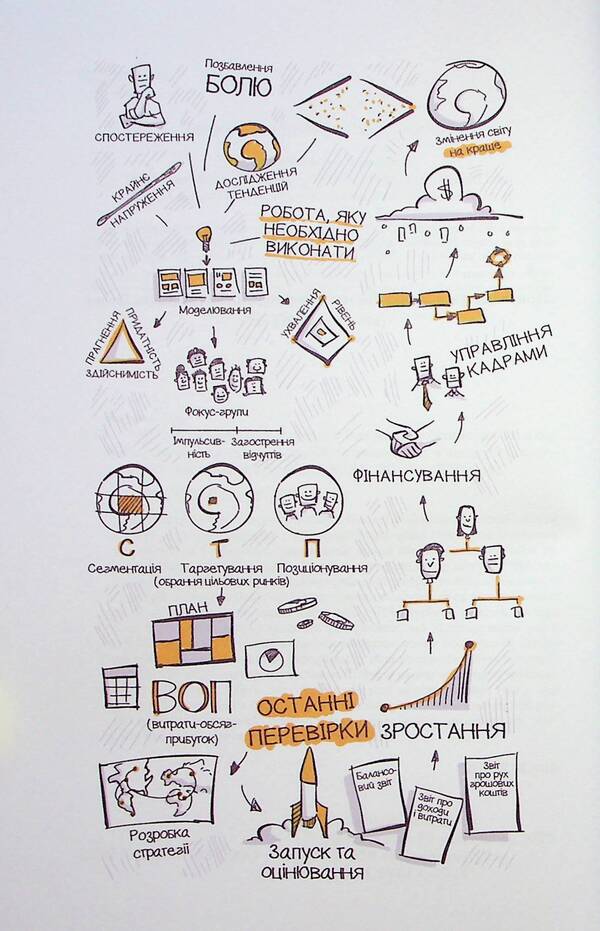 Позбавлення
БОЛЮ
СПОСТЕРЕЖЕННЯ
Змінення світу
на краще
ДОСЛІДЖЕННЯ
ТЕНДЕНЦІЙ
КРАЙНЄ
НАПРУЖЕННЯ
$
РОБОТА, ЯКУ
НЕОБХІДНО
ВИКОНАТИ
Моделювання
ПРАГНЕННЯ
ПРИДАТНІСТЬ
ЗДІЙСНИМІСТЬ
УХВАЛЕННЯ
РІВЕНЬ
УПРАВЛІННЯ
КАДРАМИ
Фокус-групи
Імпульсив-
ність
Загострення
відчуттів
ФІНАНСУВАННЯ
С Т П
Сегментація
Таргетування
(обрання цільових ринків)
Позиціонування
ПЛАН
ВОП
(витрати-обсяг-
прибуток)
ОСТАННІ
ПЕРЕВІРКИ
ЗРОСТАННЯ
Розробка
стратегії
Запуск та
оцінювання
Балансо-
вий звіт
Звіт про
доходи
і витрати
Звіт
про рух
грошових
коштів